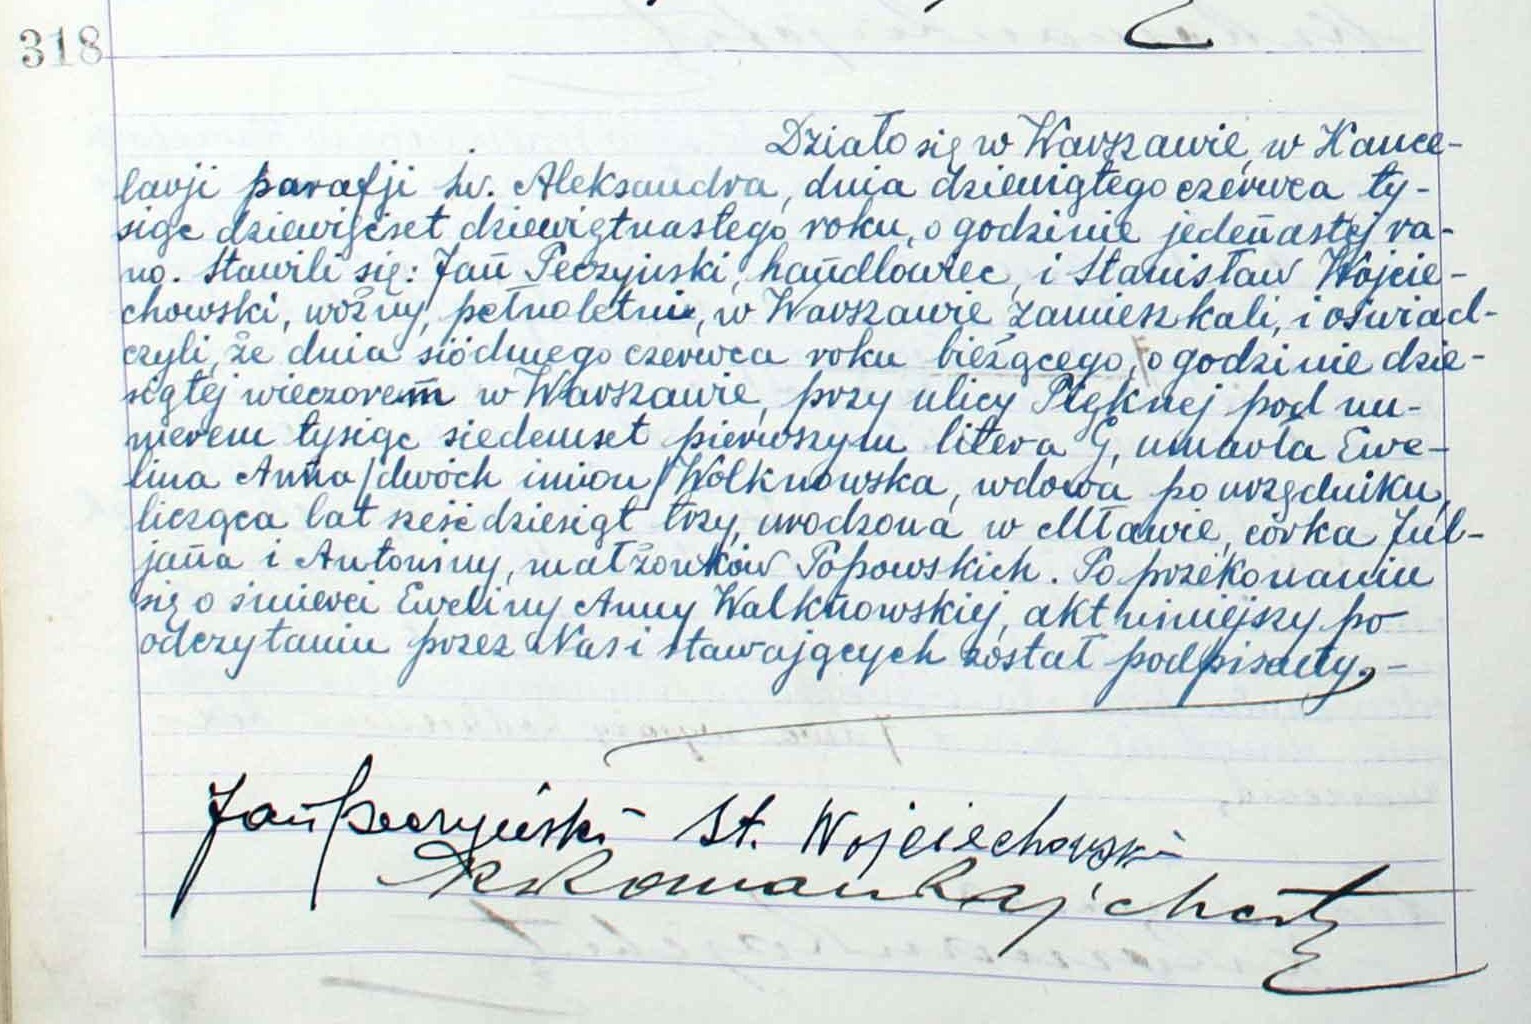 318
Działo się w Warszawie, w Kance-
larji parafji św. Aleksandra, dnia dziewiątego czerwca ty-
siąc dziewięćset dziewiętnastego roku, o godzinie jedenastej ra-
no. Stawili się: Jan Peczyński, handlowiec, i Stanisław Wojcie-
chowski, woźny, pełnoletni, w Warszawie zamieszkali, i oświad-
czyli, że dnia siódmego czerwca roku bieżącego, o godzinie dzie-
siątej wieczorem w Warszawie, przy ulicy Pięknej pod nu-
merem tysiąc siedemset pierwszym litera G, umarła Ewe-
lina Anna /dwóch imion/ Wolknowska, wdowa po urzędniku,
licząca lat sześćdziesiąt trzy, urodzona w Mławie, córka Jul-
jana i Antoniny, małżonków Popowskich. Po przekonaniu
się o śmierci Eweliny Anny Walknowskiej, akt niniejszy po
odczytaniu przez Nas i stawających został podpisany. -
Jan Peczyński St. Wojciechowski